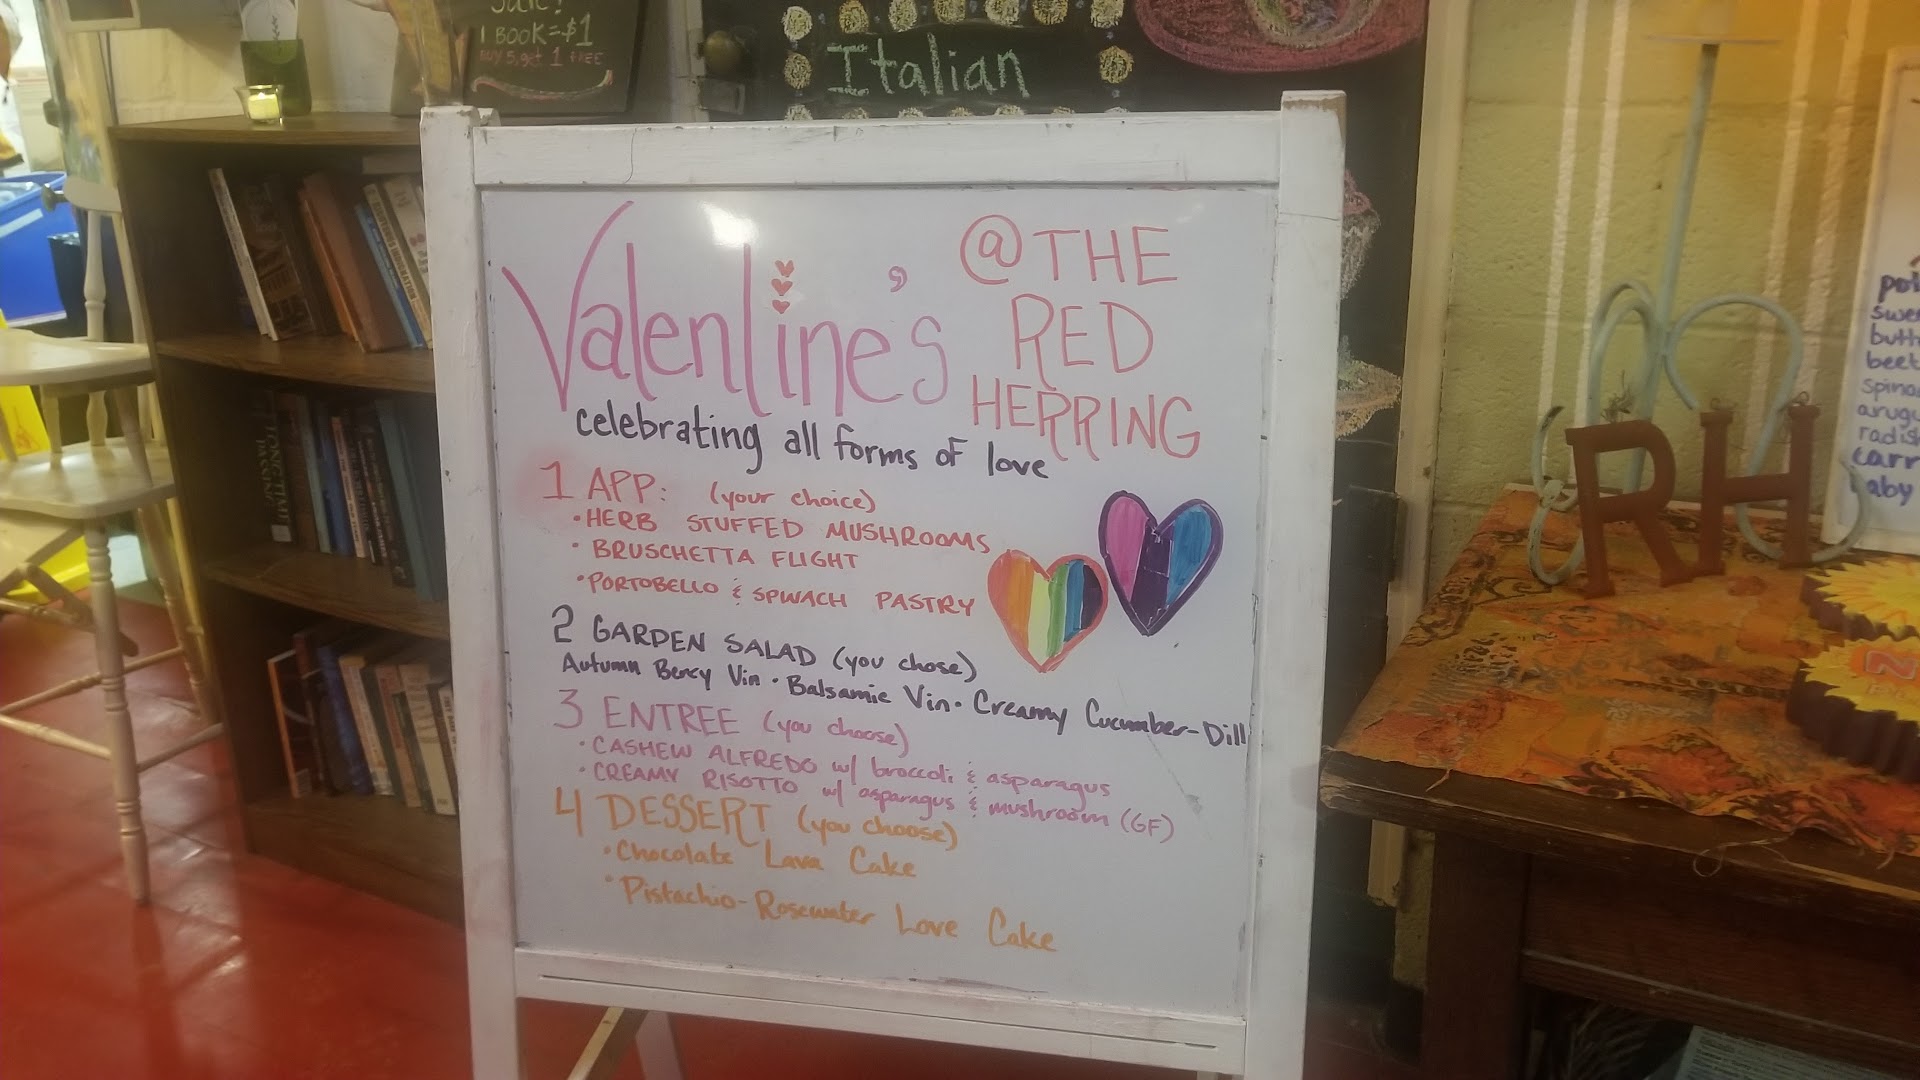 Sale!
1 BOOK=$1
BUY 5, get 1 FREE
Italian
Valentine's
@ THE
RED
HERRING
celebrating all forms of love
1 APP: (your choice)
•HERB STUFFED MUSHROOMS
•BRUSCHETTA FLIGHT
•PORTOBELLO & SPINACH PASTRY
2 GARDEN SALAD (you chose)
Autumn Berry Vin • Balsamic Vin • Creamy Cucumber-Dill
3 ENTREE (you choose)
•CASHEW ALFREDO w/ broccoli & asparagus
•CREAMY RISOTTO w/ asparagus & mushroom (GF)
4 DESSERT (you choose)
•Chocolate Lava Cake
•Pistachio-Rosewater Love Cake
RH
beet
radis
carr
baby